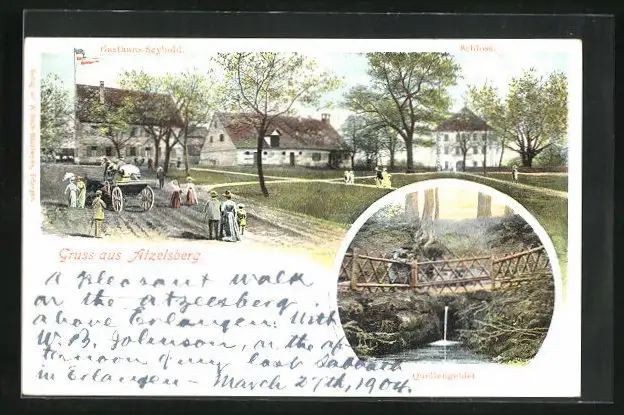 Gasthaus Seybold.
Schloss.
Gruss aus Atzelsberg
Quellengebiet
A pleasant walk
on the Atzelsberg
above Erlangen. With
W. B. Johnson, on the af
ternoon of my last Sabbath
in Erlangen – March 27th, 1904.